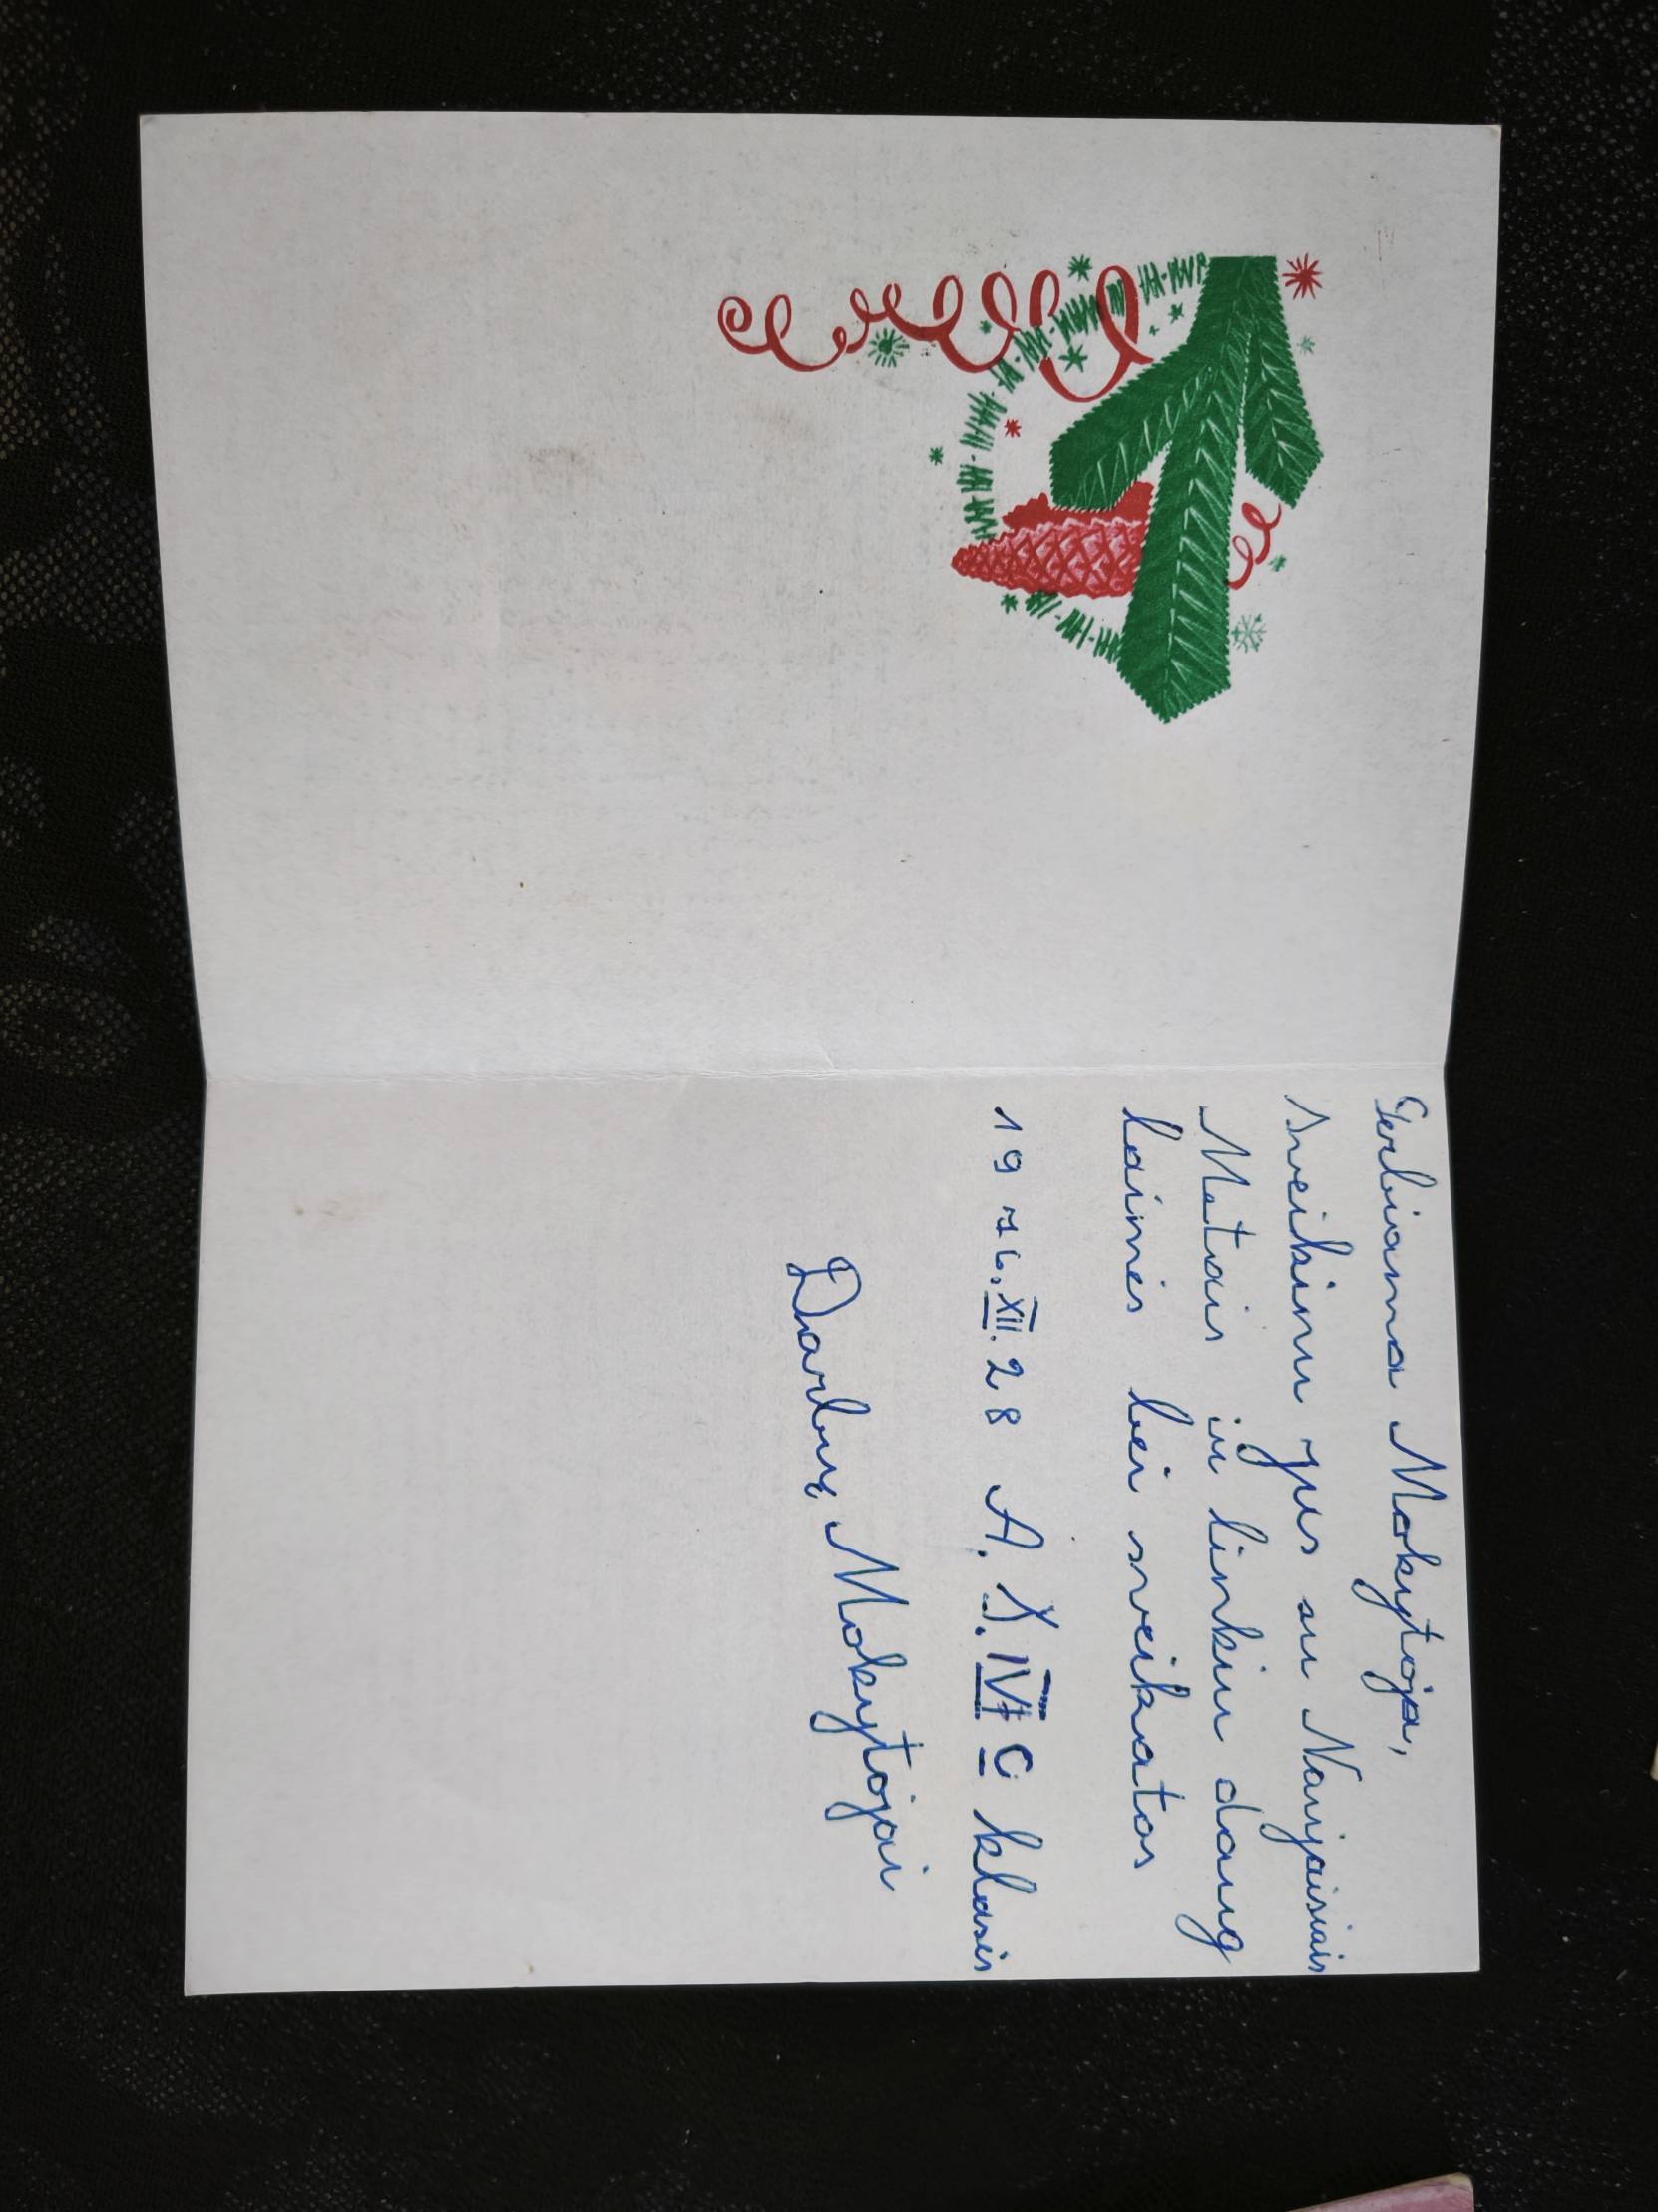 Gerbiama Mokytoja,
Sveikinu jus su Naujaisiais
Metais ir linkiu daug
laimės bei sveikatos
1976.XII.28 A. X. IVC klasės
Darbų Mokytojai